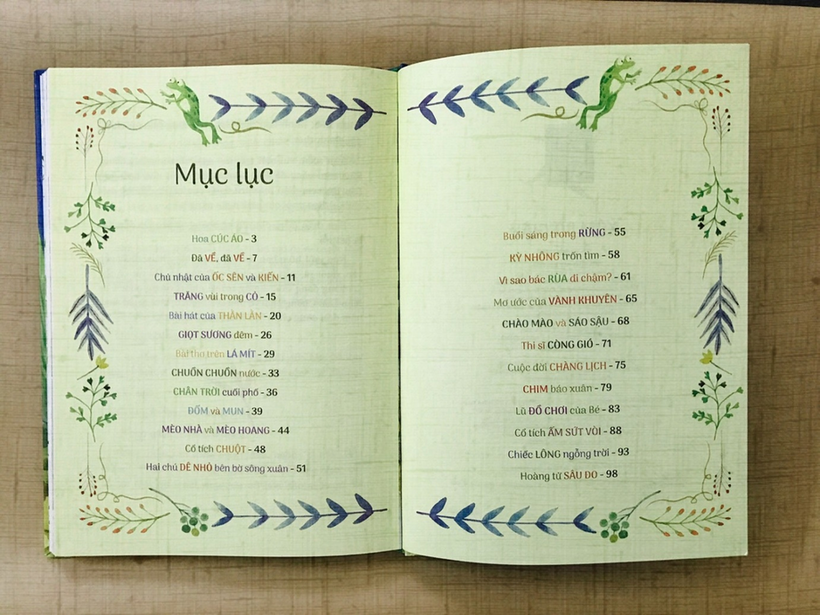 Mục lục
Hoa CÚC ÁO - 3
Đã VỀ, đã VỀ - 7
Chủ nhật của ỐC SÊN và KIẾN - 11
TRĂNG vùi trong CỎ - 15
Bài hát của THẰN LẰN - 20
GIỌT SƯƠNG đêm - 26
Bài thơ trên LÁ MÍT - 29
CHUỒN CHUỒN nước - 33
CHÂN TRỜI cuối phố - 36
ĐỐM và MUN - 39
MÈO NHÀ và MÈO HOANG - 44
Cổ tích CHUỘT - 48
Hai chú DẾ NHỎ bên bờ sông xuân - 51
Buổi sáng trong RỪNG - 55
KỲ NHÔNG trốn tìm - 58
Vì sao bác RÙA đi chậm? - 61
Mơ ước của VÀNH KHUYÊN - 65
CHÀO MÀO và SÁO SẬU - 68
Thi sĩ CÒNG GIÓ - 71
Cuộc đời CHÀNG LỊCH - 75
CHIM báo xuân - 79
Lũ ĐỒ CHƠI của Bé - 83
Cổ tích ẤM SỨT VÒI - 88
Chiếc LÔNG ngỗng trời - 93
Hoàng tử SÂU ĐO - 98